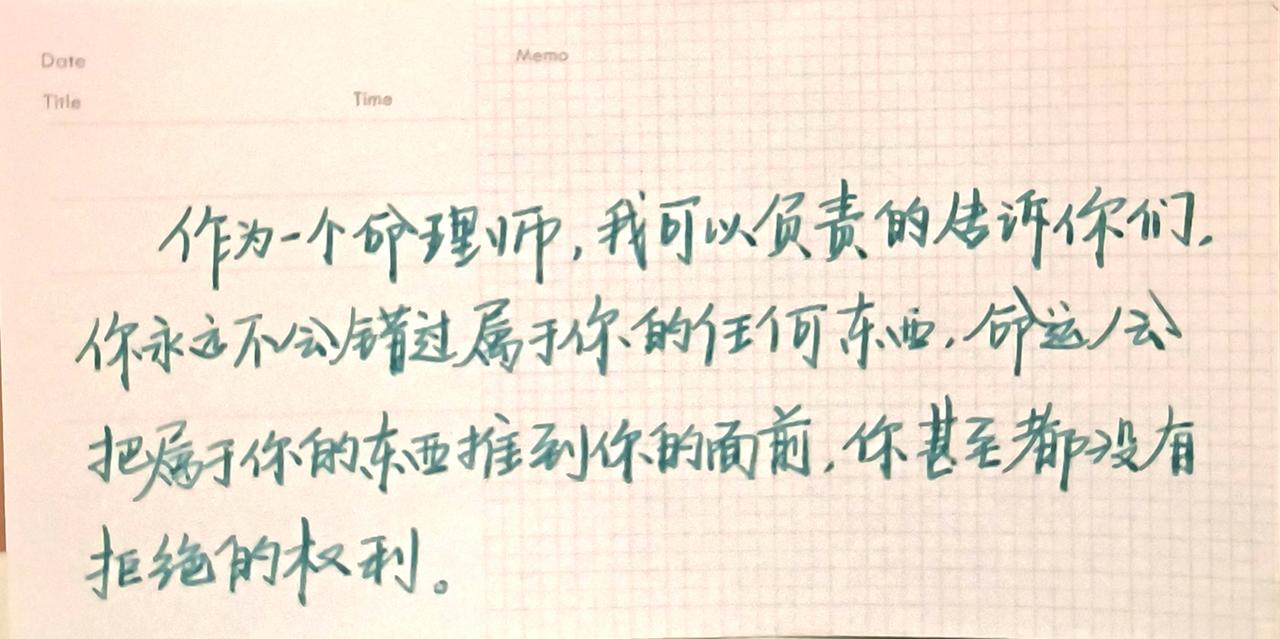 Date
Memo
Title Time
作为一个命理师,我可以负责的告诉你们,
你永远不会错过属于你的任何东西,命运会
把属于你的东西推到你的面前,你甚至都没有
拒绝的权利。